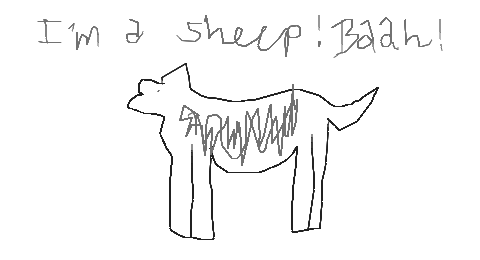 I'm a sheep! Baah!